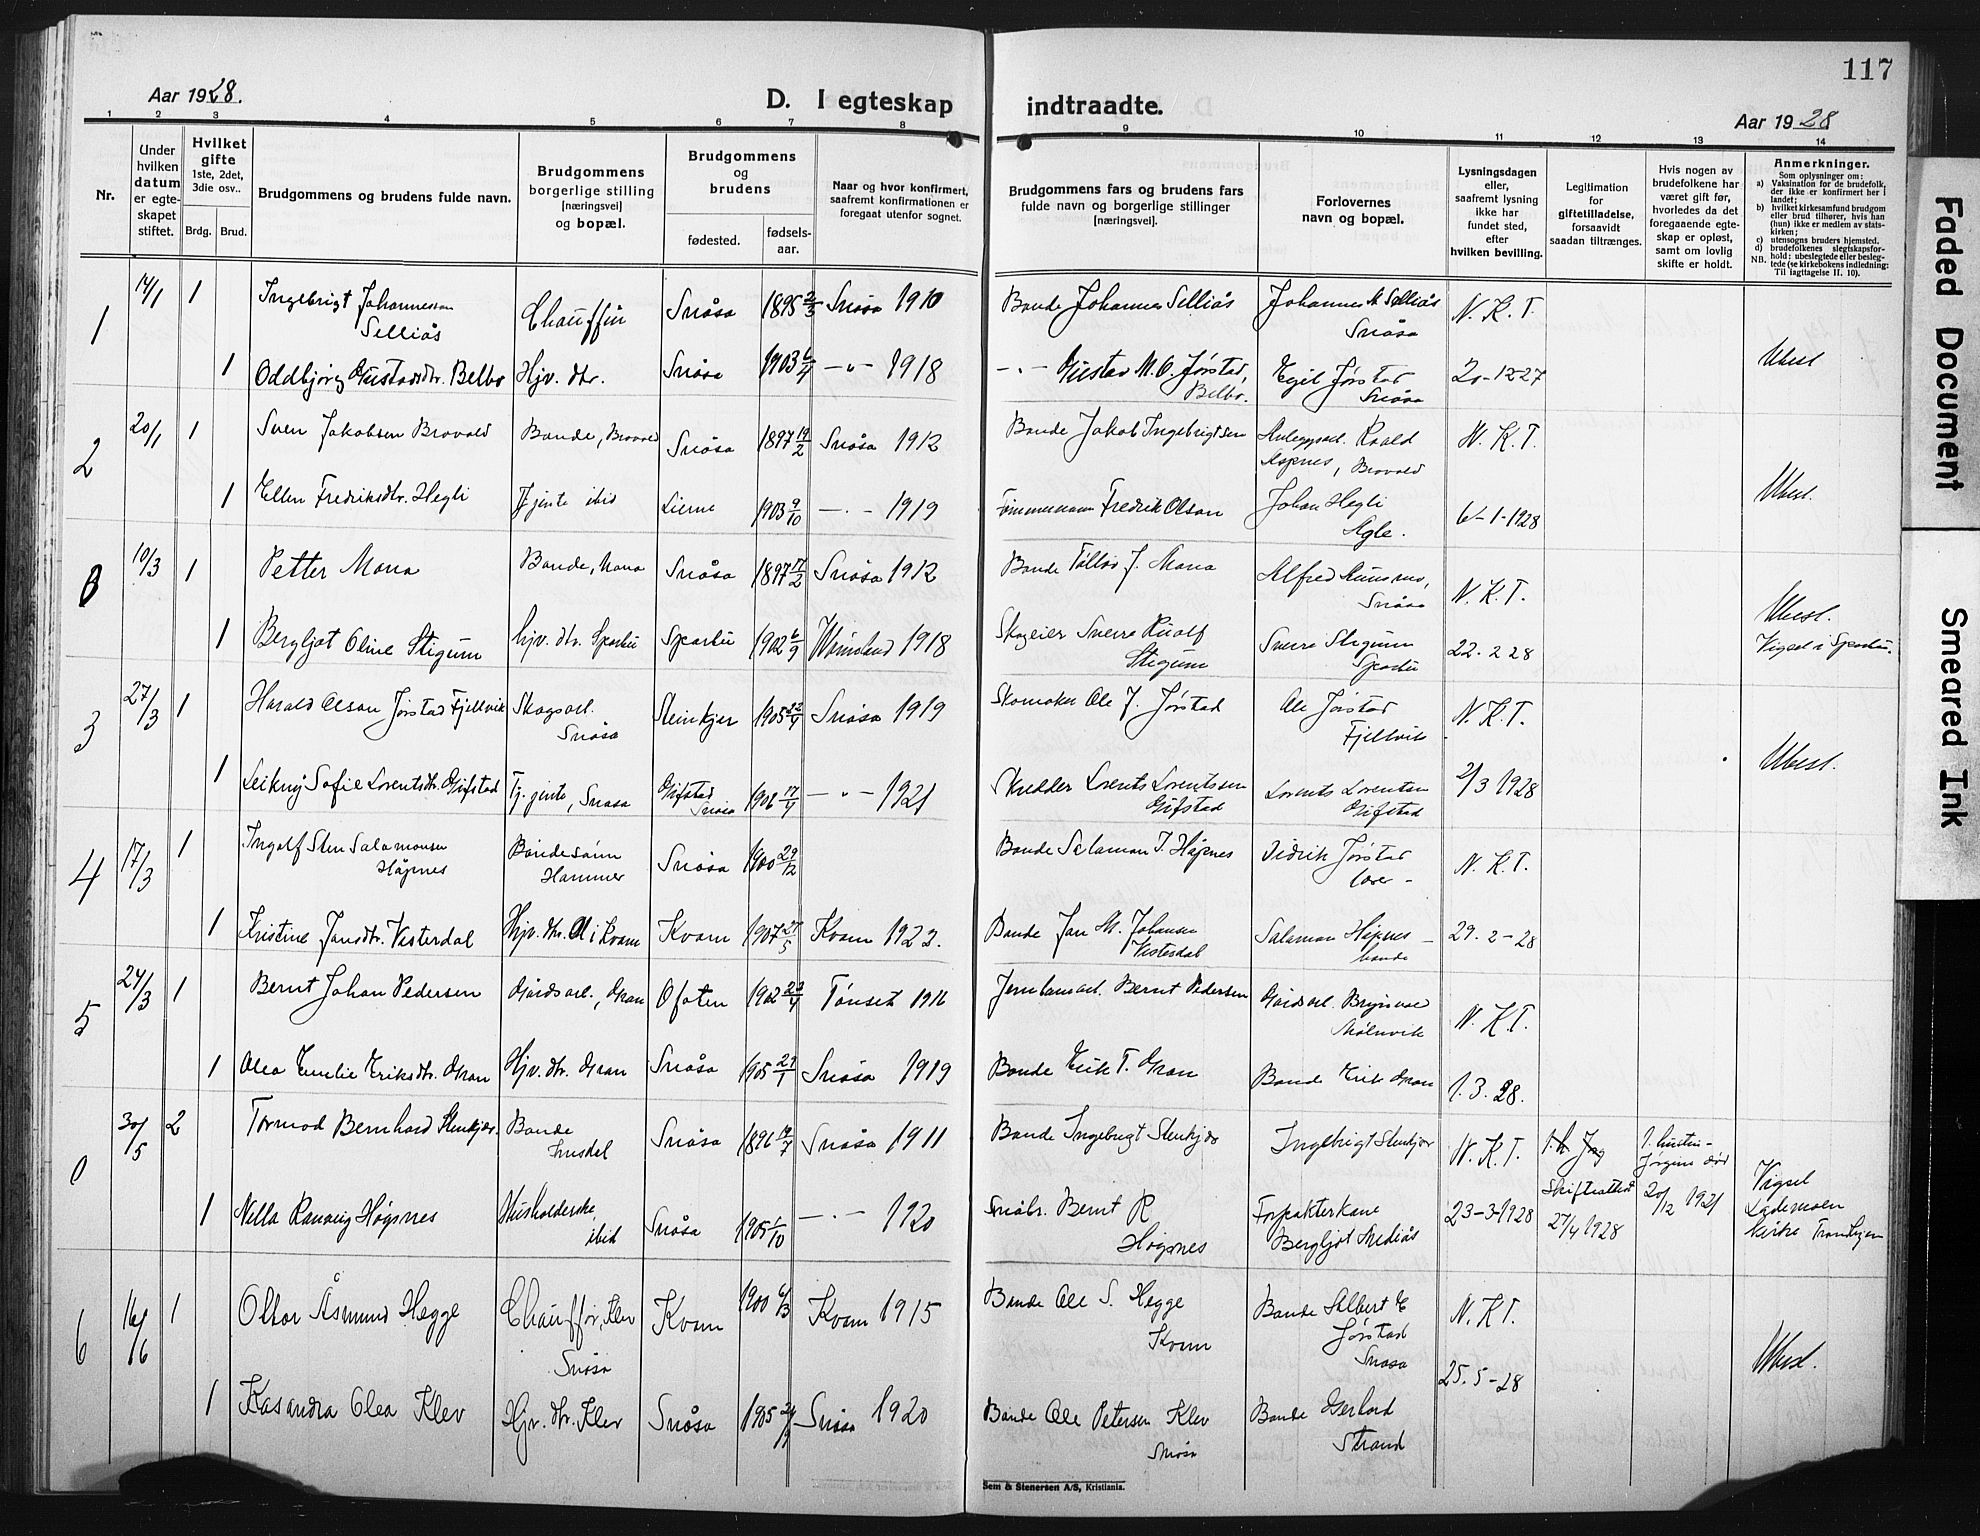 117
Aar 1928.
D. I egteskap indtraadte.
Aar 1928
1 2 3 4 5 6 7 8 9 10 11 12 13 14
Nr.
Under hvilken datum er egte-skapet stiftet.
Hvilket gifte
1ste, 2det, 3die osv..
Brdg. Brud.
Brudgommens og brudens fulde navn.
Brudgommens borgerlige stilling [næringsvei] og bopæl.
Brudgommens og brudens
fødested. fødsels-aar.
Naar og hvor konfirmert, saafremt konfirmationen er foregaat utenfor sognet.
Brudgommens fars og brudens fars fulde navn og borgerlige stillinger [næringsvei].
Forlovernes navn og bopæl.
Lysningsdagen eller, saafremt lysning ikke har fundet sted, efter hvilken bevilling.
Legitimation for giftetilladelse, forsaavidt saadan tiltrænges.
Hvis nogen av brudefolkene har været gift før, hvorledes da det foregaaende egte-skap er opløst, samt om lovlig skifte er holdt.
Anmerkninger.
Som oplysninger om:
a) Vaksination for de brudefolk, der ikke er konfirmert her i landet;
b) hvilket kirkesamfund brudgom eller brud tilhører, hvis han (hun) ikke er medlem av stats-kirken;
c) utensogns bruders hjemsted.
d) brudefolkenes slegtskapsfor-hold: ubeslegtede eller besleg-tede (se kirkebokens indledning:
NB. Til iagttagelse II. 10).
1 14/1 1 Ingebrigt Johannessen Selliås Chauffür Snåsa 1895 2/3 Snåsa 1910 Bonde Johannes Selliås Johannes M Selliås Snåsa N. K. T.
1 Oddbjörg Gustavsdtr. Belbo Hjv. dtr. Snåsa 1903 6/4 -"- 1918 -"- Gustav M. O. Jørstad, Belbo. Egil Jørstad Snåsa 20-12-27 Ubesl
2 20/1 1 Sven Jakobsen Brovold Bonde, Brovold Snåsa 1897 19/2 Snåsa 1912 Bonde Jakob Ingebrigtsen Anleggsarb. Roald Aspnes, Brovold N. K. T.
1 Ellen Fredriksdtr. Hegli Tjjente ibid Lierne 1903 9/10 -"- 1919 Tømmermann Fredrik Olson Johan Hegli Agle. 6-1-1928 Ubesl.
0 10/3 1 Petter Mona Bonde, Mona Snåsa 1897 17/2 Snåsa 1912 Bonde J. Mona Alfred Snåsa N. K. T.
1 Bergljot Oline Stigum hjv. dtr. Sparbu Sparbu 1902 6/9 1918 Skogeier Sverre Stigum Sverre Stigum Sparbu 22. 2 28 Ubesl. Vigsel i Sparbu.
3 27/3 1 Harald Olson Jørstad Fjellvik Skogsarb. Snåsa Steinkjer 1905 22/4 Snåsa 1919 Skomaker Ole J. Jørstad Ole Jørstad Fjellvik N. K. T.
1 Leikny Sofie Lorentsdtr. Gifstad Tj. jente, Snåsa Gifstad Snåsa 1906 17/4 -"- 1921 Skredder Lorents Lorentssen Gifstad Lorents Lorentsen Gifstad 2/3 1928 Ubesl.
4 17/3 1 Ingolf Sten Salamonsen Hågnes Bondesönn Hammer Snåsa 1900 29/12 Bonde Salamon I. Hågnes Didrik Jørstad lærer - N. K. T.
1 Kristine Jonsdtr. Vesterdal Hjv. dtr. i Kvam Kvam 1907 27/5 Kvam 1922. Bonde Jon M. Johansen Vesterdal Salamon Hågnes bonde 29. 2 - 28
5 24/3 1 Bernt Johan Pedersen Gårdsarb., Gran Ofoten 1902 23/4 Tønset 1916 Jernbanearb. Bernt Pedersen Gårdsarb. Brynvald Mölnvik N. K. T.
1 Olea Emelie Eriksdtr. Gran Hjv. dtr. Gran Snåsa 1905 29/1 Snåsa 1919 Bonde Erik T. Gran Bonde Erik Gran 1. 3. 28.
0 30/5 2 Tormod Bernhard Stenkjær. Bonde Snåsa 1896 14/7 Snåsa 1911 Bonde Ingebrigt Stenkjær Ingebrigt Stenkjær N. K. T. Skifteattest 27/4 1928 1. hustru - Jørgine död 20/12 1921
1 Nella Ranveig Høgsnes Husholderske ibid Snåsa 1905 1/10 -"- 1920 Småbr. Bernt R Høgsnes Forpakterkone Bergljot Mediås 23-3-1928 Vigsel Lademoen kirke Trondhjem
6 16/6 1 Ottar Åsmund Hegge Chauffør, Klev Snåsa Kvam 1900 6/3 Kvam 1915 Bonde Ole S. Hegge Kvam Bonde Albert E Jørstad Snåsa N. K. T.
1 Kasandra Olea Klev Hjv. dtr. Klev Snåsa 1905 24/9 Snåsa 1920 Bonde Ole Petersen Klev Snåsa Bonde Gerhard Strand 25. 5 - 28 Ubesl.
Sem & Stenersen A/S, Kristiania.
Faded Document
Smeared Ink